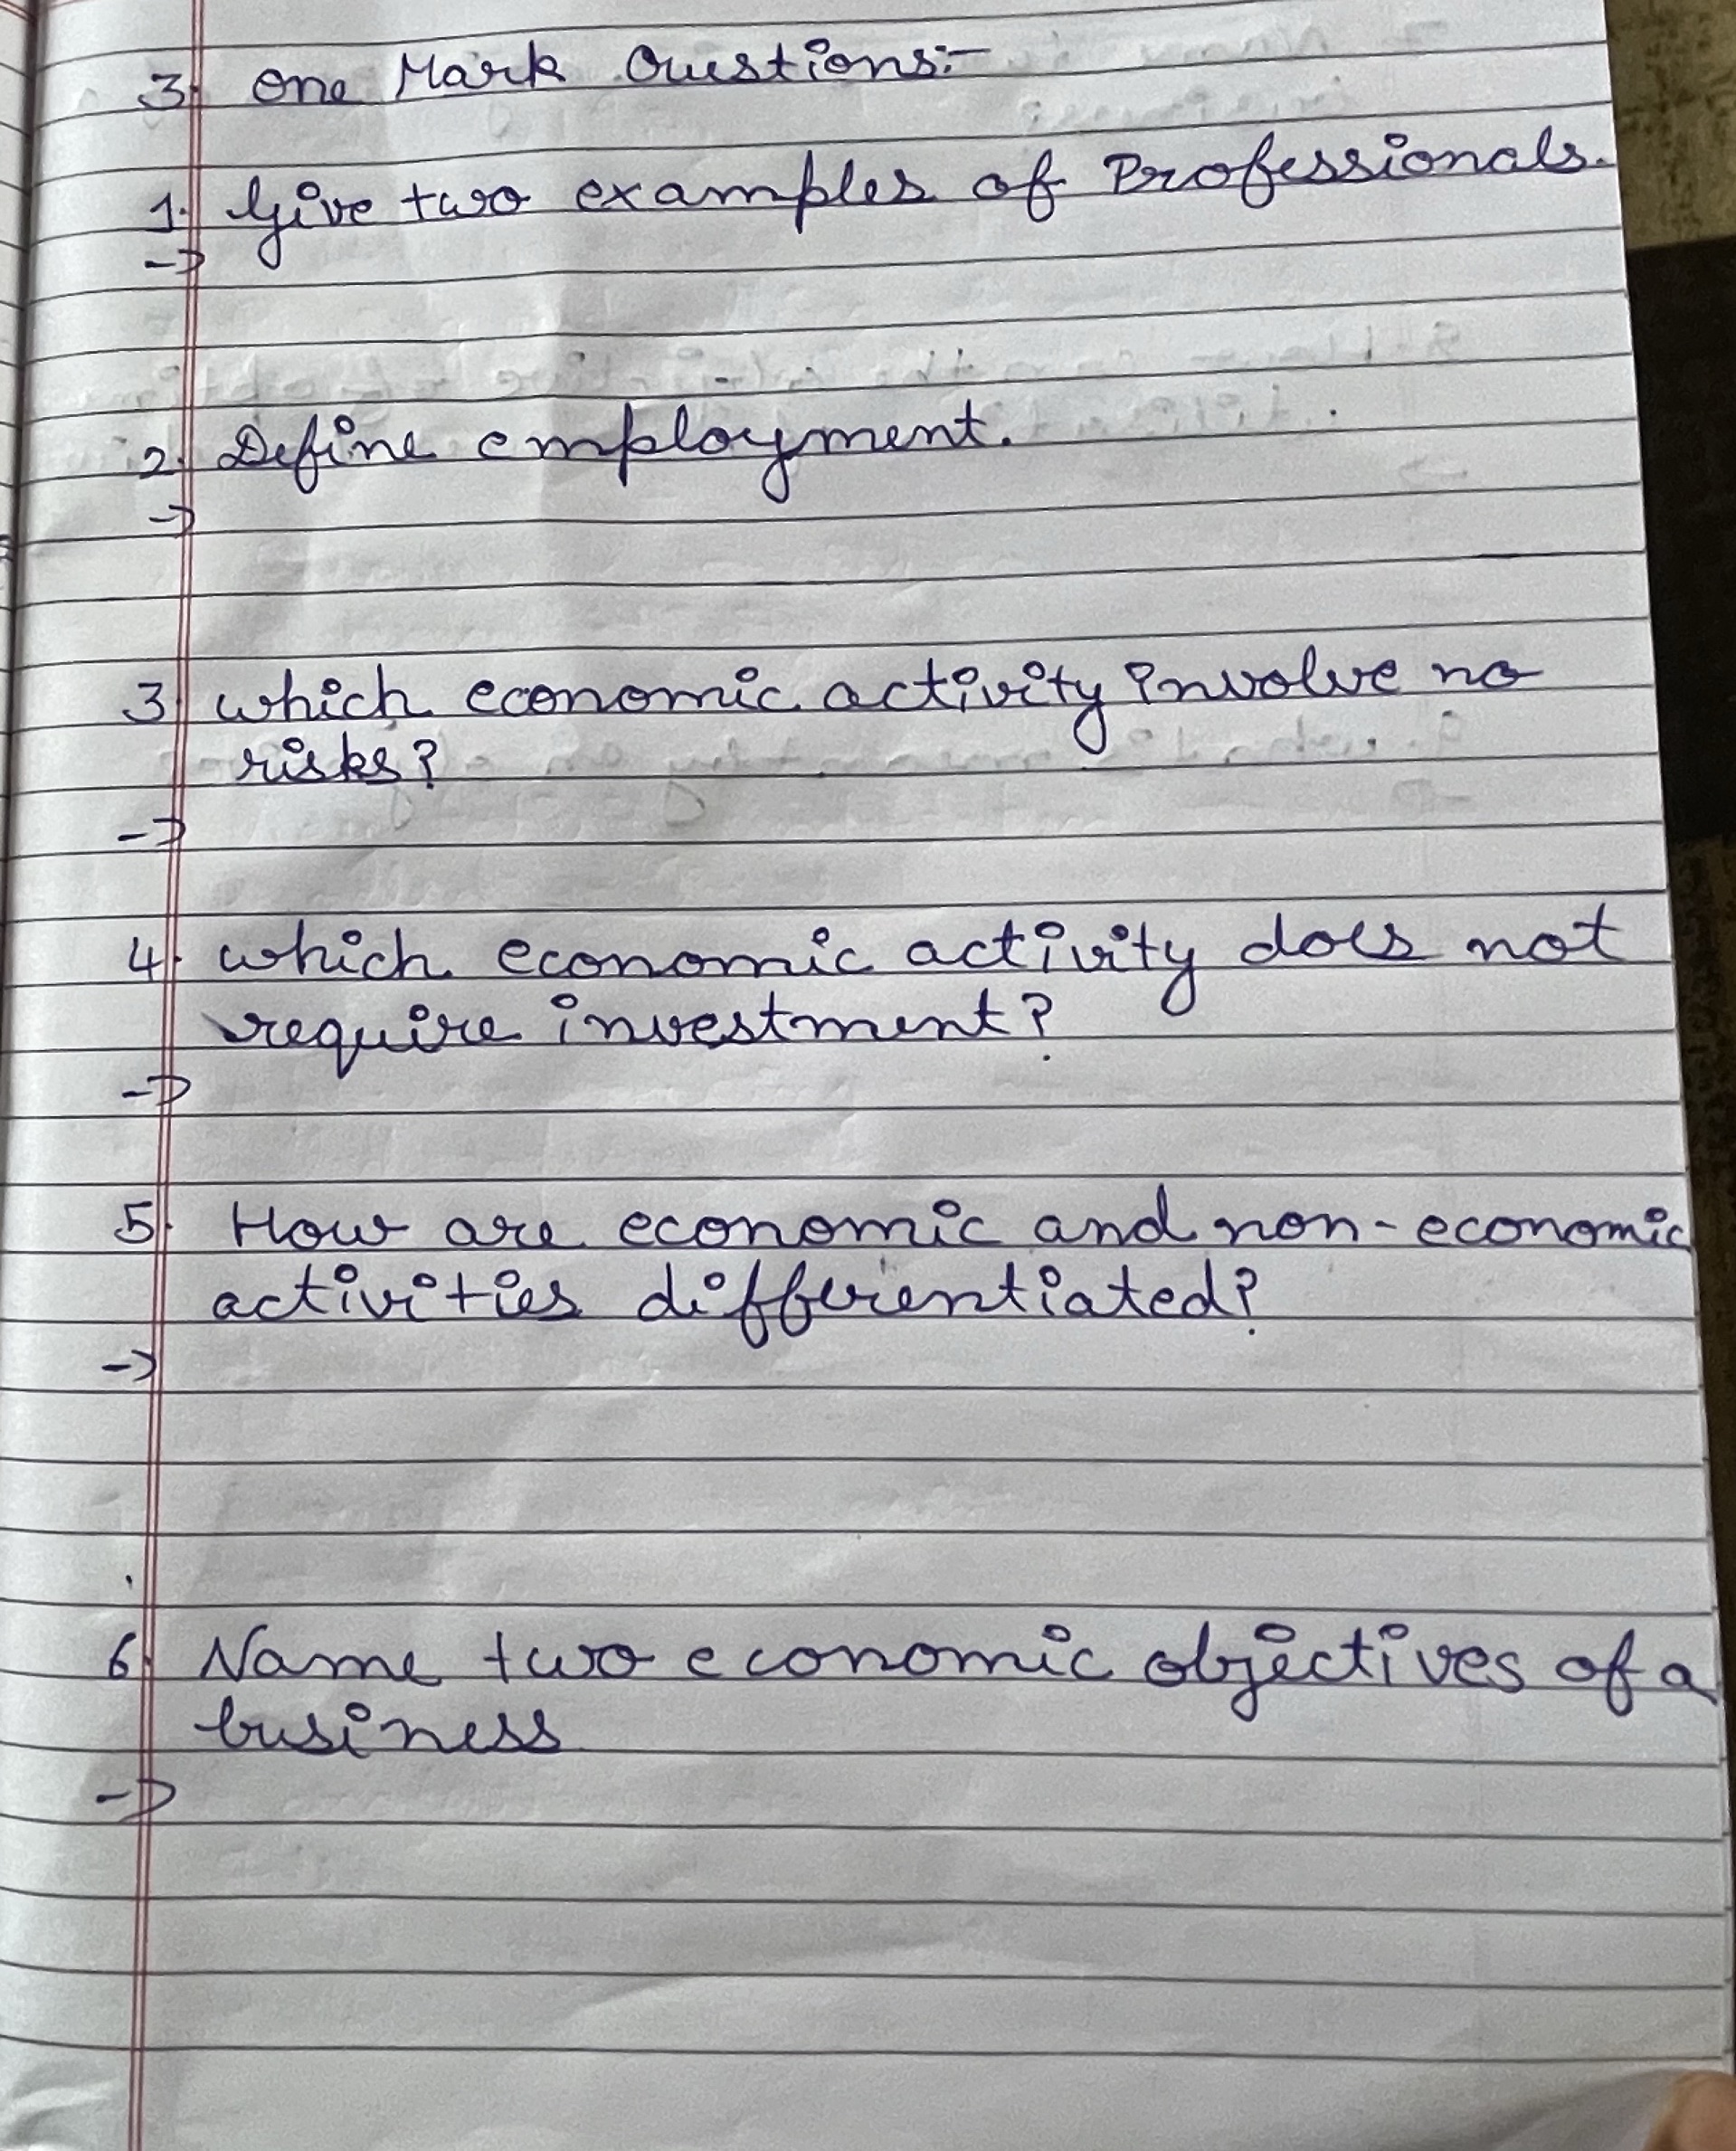 3. One Mark Questions:-
1. Give two examples of Professionals.
->
2. Define employment.
->
3. which economic activity involve no
risks?
->
4. which economic activity does not
require investment?
->
5. How are economic and non-economic
activities differentiated?
->
6. Name two economic objectives of a
business
->